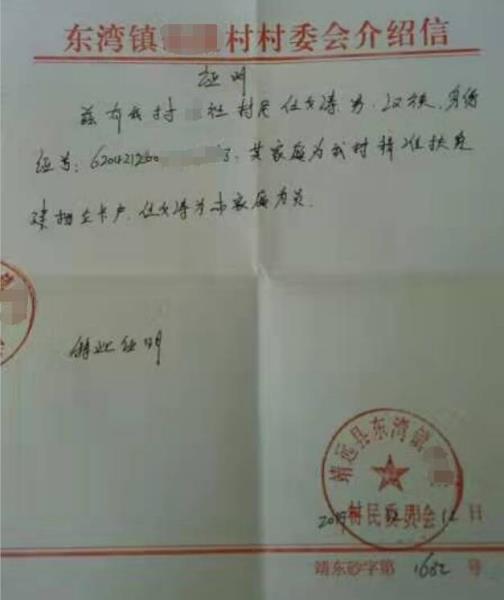 东湾镇 村村委会介绍信
证明
兹有我村 社村民任 涛 男，汉族，身份
证号：62042120 3，其家庭为我村精准扶贫
建档立卡户，任 涛为本家庭成员。
特此证明
靖远县东湾镇
村民委员会
201 12日
靖东砂字第1682号